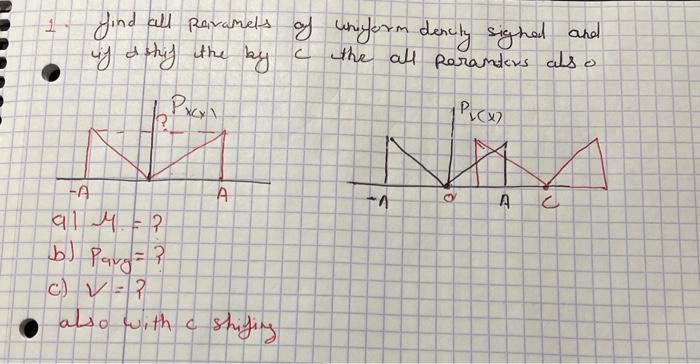 1. find all Paramels of uniform dencity sighal and
if d shif the by c the all Paramders also
Px(x)
?
-A
A
Px(x)
-A
0
A
C
a) M = ?
b) Pavg = ?
c) V = ?
also with c shifing